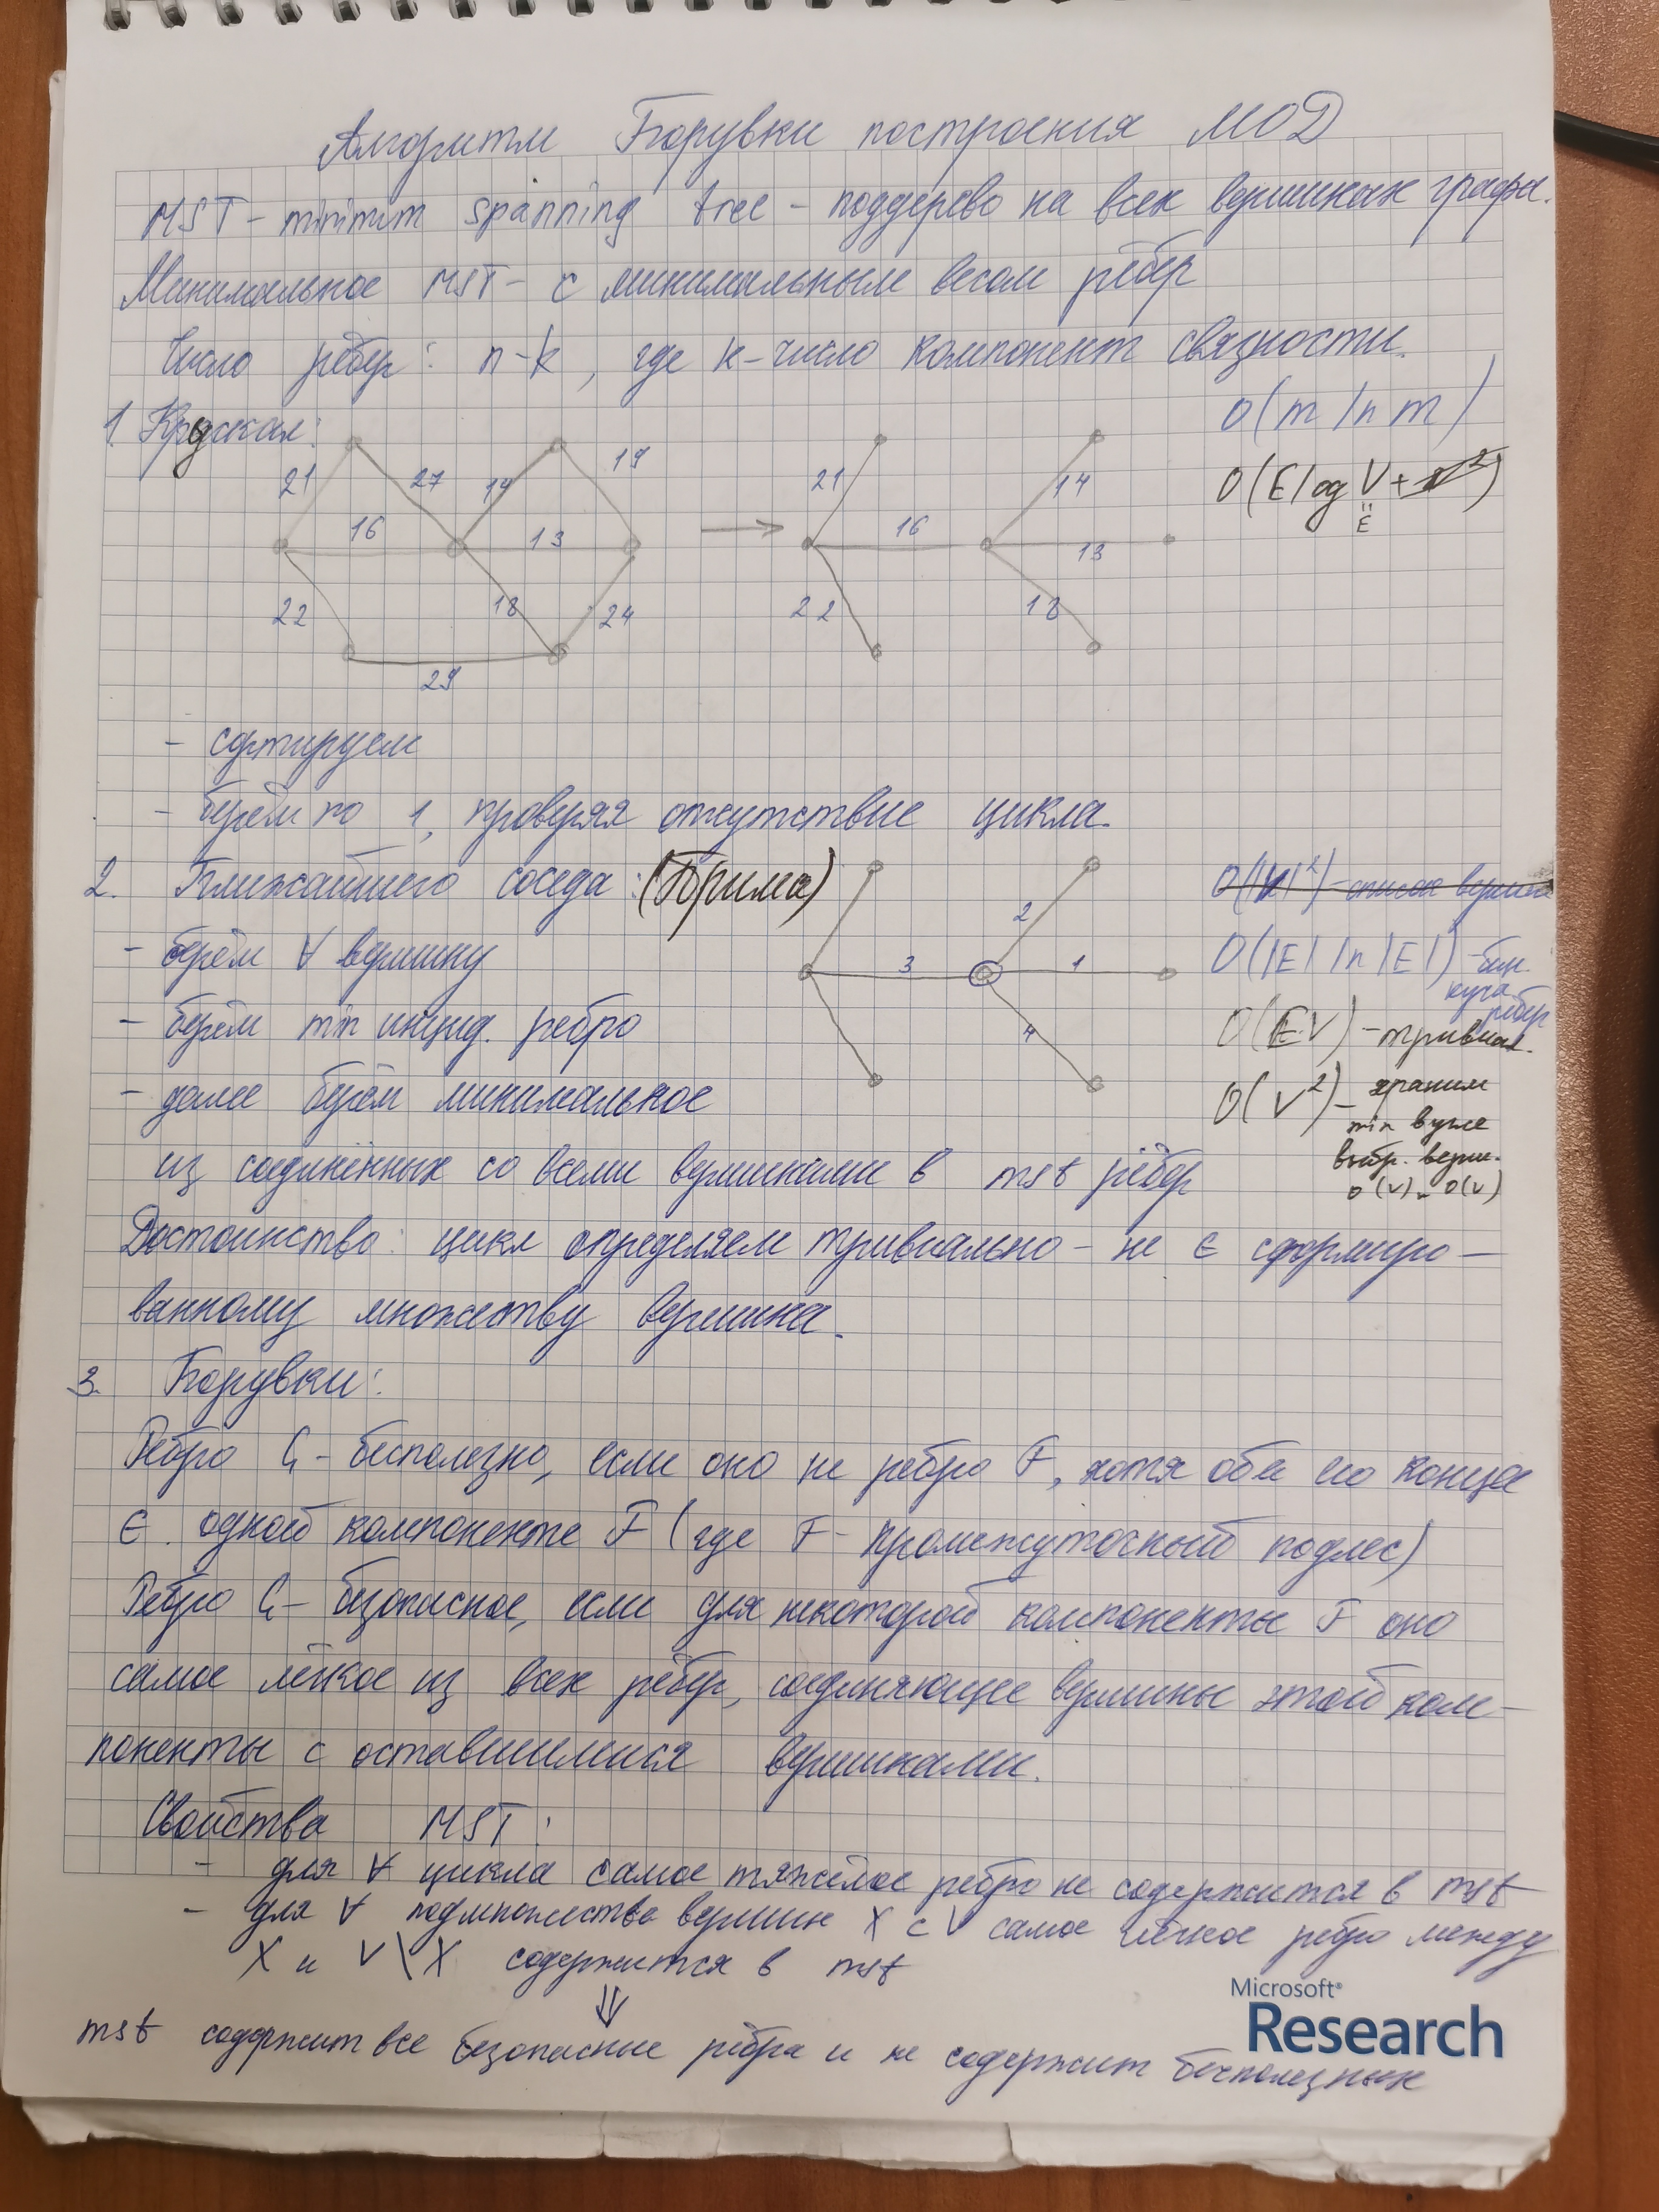 Алгоритм Борувки построения МОД
MST - minimum spanning tree - поддерево на всех вершинах графа.
Минимальное MST - с минимальным весом рёбер
Число рёбер: n-k, где k-число компонент связности.
1. Крускал:
O(m ln m)
O(E log V + n²)
Ë
21 27 14 19
16 13
22 18 24
29
21 14
16 13
22 18
- сортируем
- берём по 1, проверяя отсутствие цикла.
2. Ближайшего соседа: (Прима)
O(|V|²) - список вершин
- берём ∀ вершину
O(|E| ln |E|) - бин. куча рёбер
- берём min инцид. ребро
O(EV) - тривиал.
- далее берём минимальное
O(V²) - храним
min в уже
выбр. верш.
O(V) O(V)
2
3 1
4
из соединённых со всеми вершинами в mst рёбер
Достоинство: цикл определяем тривиально - не ∈ сформиро-
ванному множеству вершина.
3. Борувки:
Ребро G - бесполезно, если оно не ребро F, хотя оба его конца
∈ одной компоненте F (где F - промежуточный подлес)
Ребро G - безопасное, если для некоторой компоненты F оно
самое лёгкое из всех рёбер, соединяющее вершины этой ком-
поненты с оставшимися вершинами.
Свойства MST:
- для ∀ цикла самое тяжёлое ребро не содержится в mst
- для ∀ подмножества вершин X ⊂ V самое лёгкое ребро между
X и V \ X содержится в mst
⇓
mst содержит все безопасные рёбра и не содержит бесполезных
Microsoft®
Research